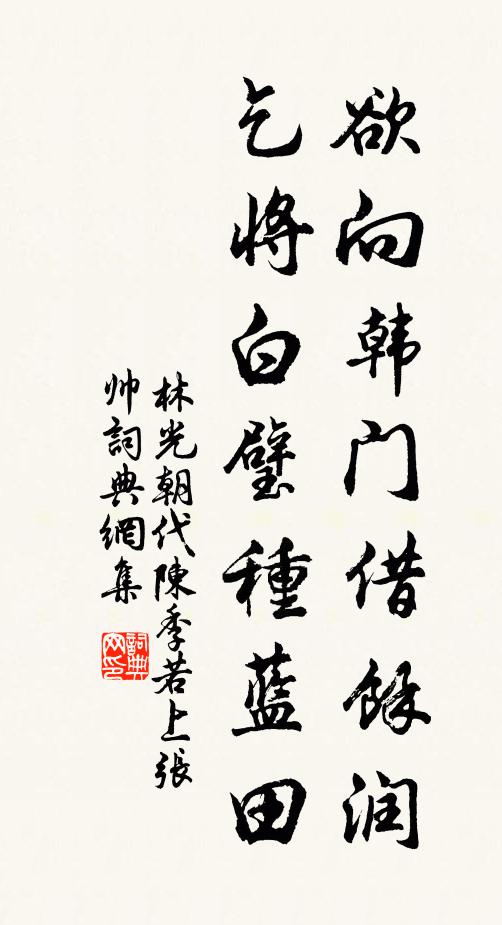 欲向韩门借餘润
乞將白璧種藍田
林光朝代陳季若上張
帅詞典網集
詞典网印